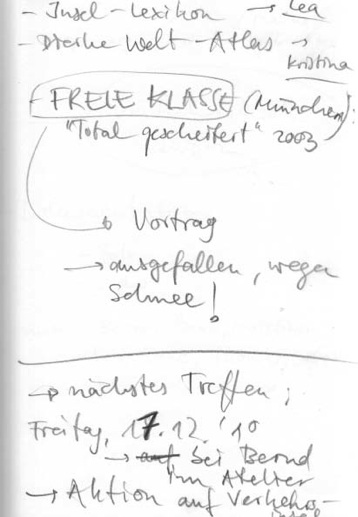 - Insel-Lexikon → Lea
- Starke Welt-Atlas →
Kristina
- FREIE KLASSE (München):
"Total gescheitert" 2003
→ Vortrag
→ ausgefallen, wegen
Schnee!
→ nächstes Treffen:
Freitag, 17.12.'10
→ auf bei Bernd
im Atelier
→ Aktion auf Verkehrs-